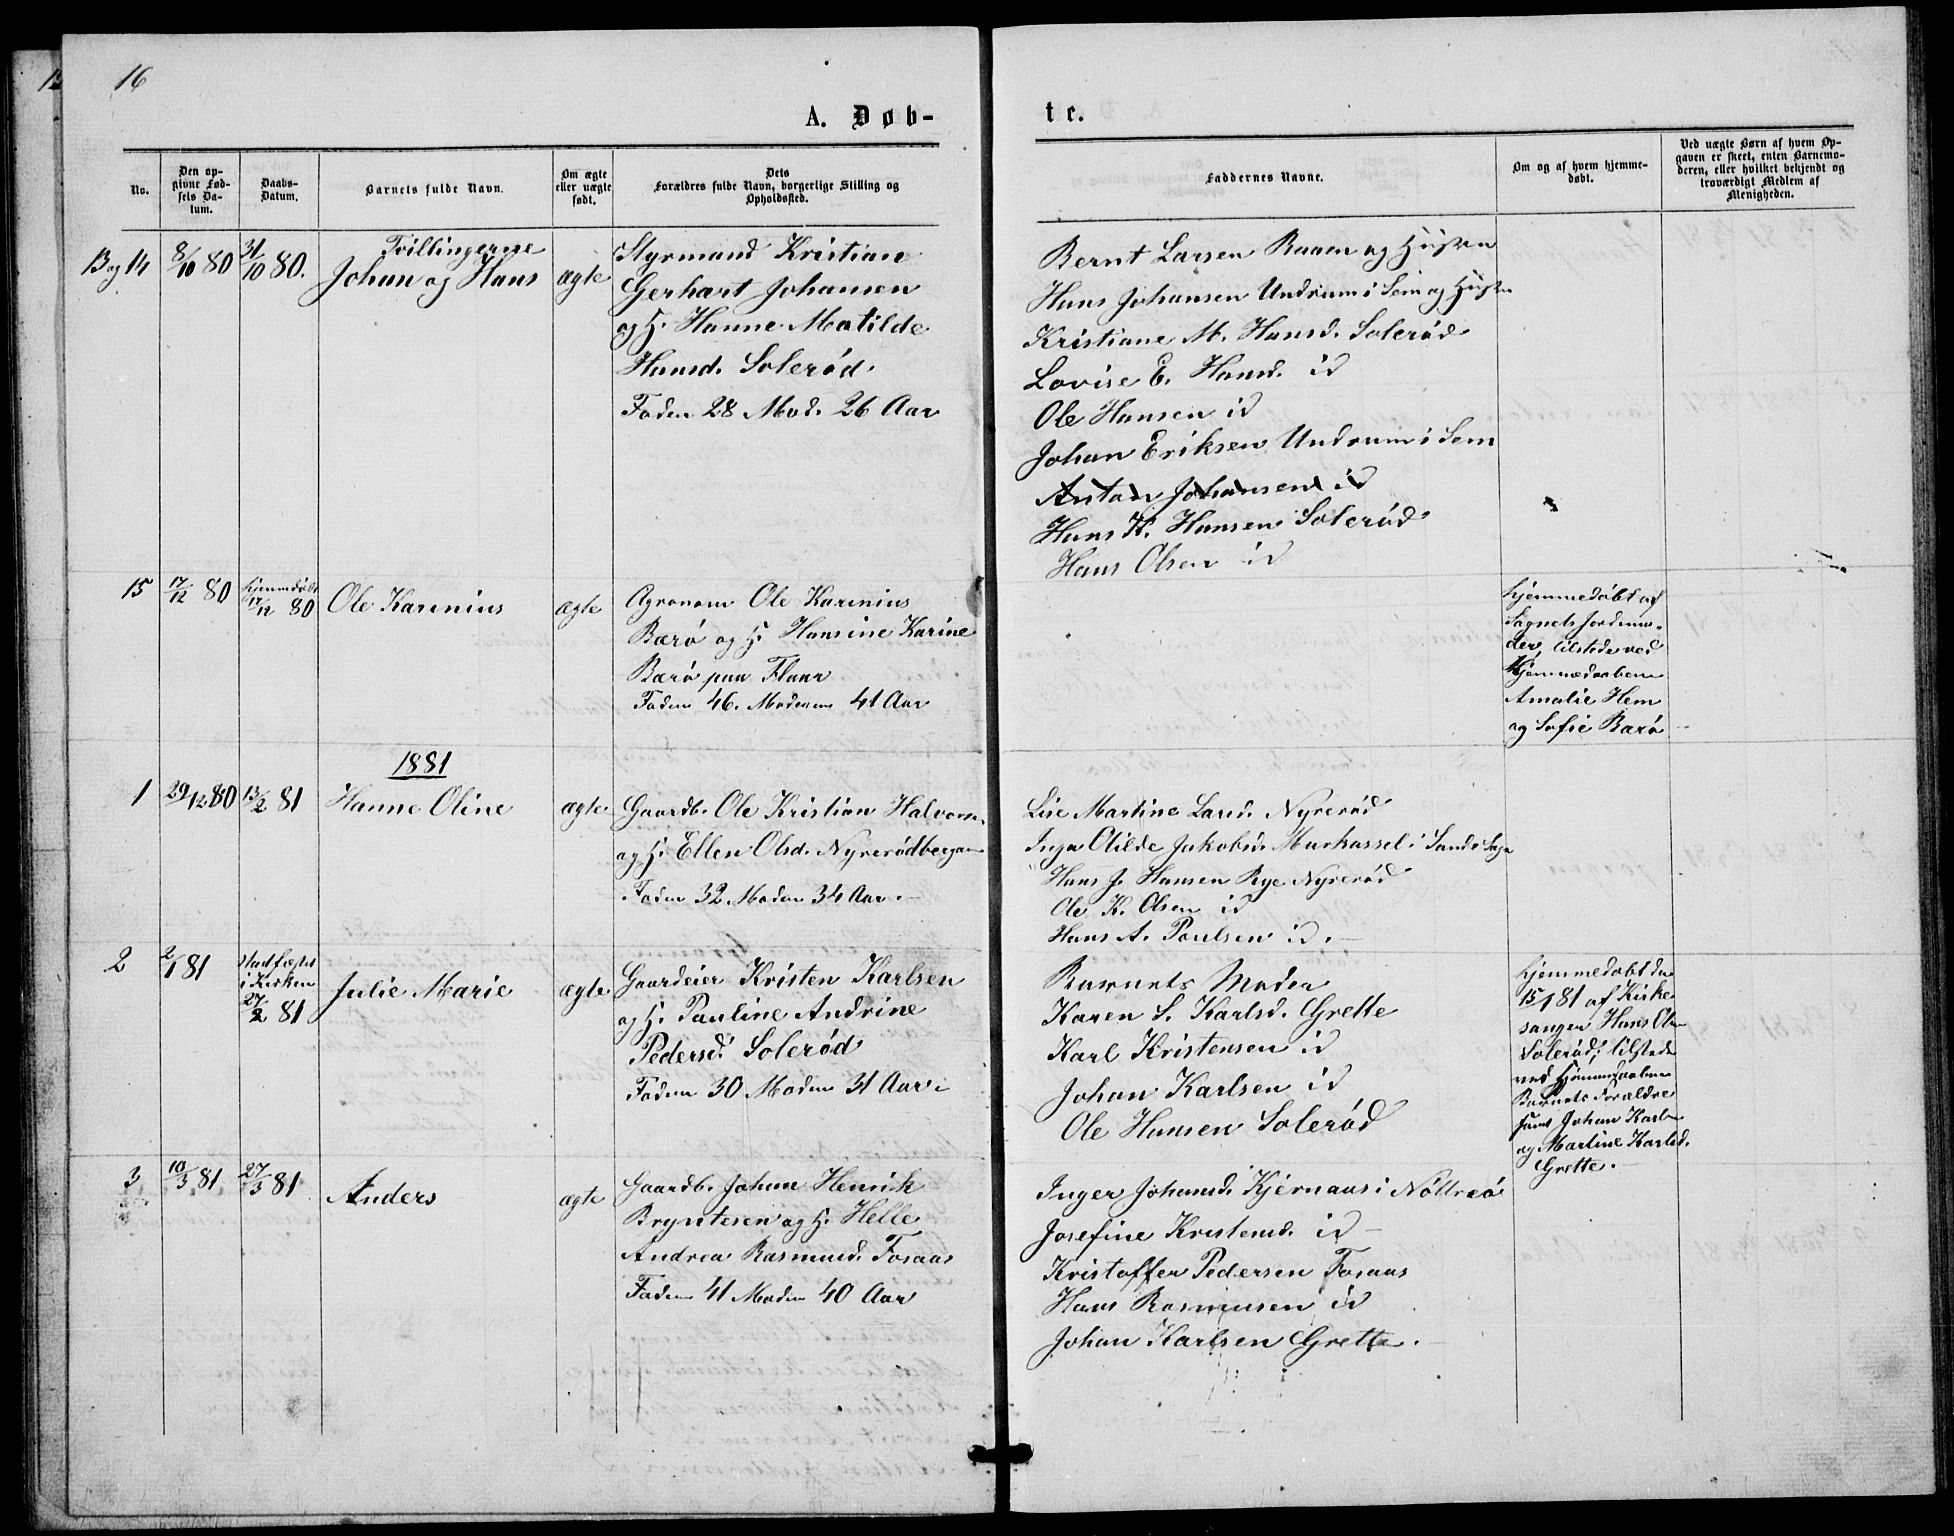 16
A. Døb-
te.
No.
Den op-
givne Fød-
sels Da-
tum.
Daabs-
Datum.
Barnets fulde Navn.
Om ægte
eller uægte
født.
Dets
Forældres fulde Navn, borgerlige Stilling og
Opholdssted.
Faddernes Navne.
Om og af hvem hjemme-
døbt.
Ved uægte Børn af hvem Op-
gaven er skeet, enten Barnemo-
deren, eller hvilket bekjendt og
troværdigt Medlem af
Menigheden.
13 og 14
8/10 80
31/10 80.
Tvillingerne
Johan og Hans
ægte
Styrmand Kristian
Gerhart Johansen
og H. Hanne Matilde
Hansd. Solerød.
Faden 28 Mod. 26 Aar
Bernt Larsen Raaen og Hustru
Hans Johansen Undrum i Sem og Hustru
Kristiane M. Hansd. Solerød
Lovise E. Hansd. id
Ole Hansen id
Johan Eriksen Undrum i Sem
Anton Johansen id
Hans K. Hansen Solerød
Hans Olsen id
15
17/12 80
hjemmedøbt
17/12 80
Ole Karinius
ægte
Agronom Ole Karinius
Barø og H. Hansine Karine
Barø paa Flaar
Faden 46. Moderen 41 Aar
hjemmedøbt af
Sognets Jordemo-
der, tilstede ved
Hjemmedaaben
Amalie Hem
og Sofie Barø
1881
1
29/12 80
13/2 81
Hanne Oline
ægte
Gaardb. Ole Kristian Halvors.
og H. Ellen Olsd. Nyrerødbergan
Faden 32 Moden 34 Aar.
Lise Martine Larsd. Nyrerød
Inga Otilde Jakobsd. Markassel i Sande Sogn
Hans J. Hansen Rye Nyrerød
Ole K. Olsen id
Hans A. Paulsen id.
2
2/1 81
Stadfæstet
i Kirken
27/2 81
Julie Marie
ægte
Gaardeier Kristen Karlsen
og H. Pauline Andrine
Pedersd. Solerød
Faden 30 Moden 31 Aar
Barnets Moder
Karen S. Karlsd. Grette
Karl Kristensen id
Johan Karlsen id
Ole Hansen Solerød
hjemmedøbt den
15/1 81 af Kirke-
sanger Hans Olsen
Solerød; tilstede
ved Hjemmedaaben
Barnets Forældre
samt Johan Karlsen
og Martine Karlsd.
Grette.
3
10/3 81
27/3 81
Anders
ægte
Gaardb. Johan Henrik
Bryntesen og H. Helle
Andrea Rasmusd. Fosaas
Faden 41 Moden 40 Aar
Inger Johansd. Kjernaas i Nøtterø
Josefine Kristensd. id
Kristoffer Pedersen Fosaas
Hans Rasmusen id
Johan Karlsen Grette.